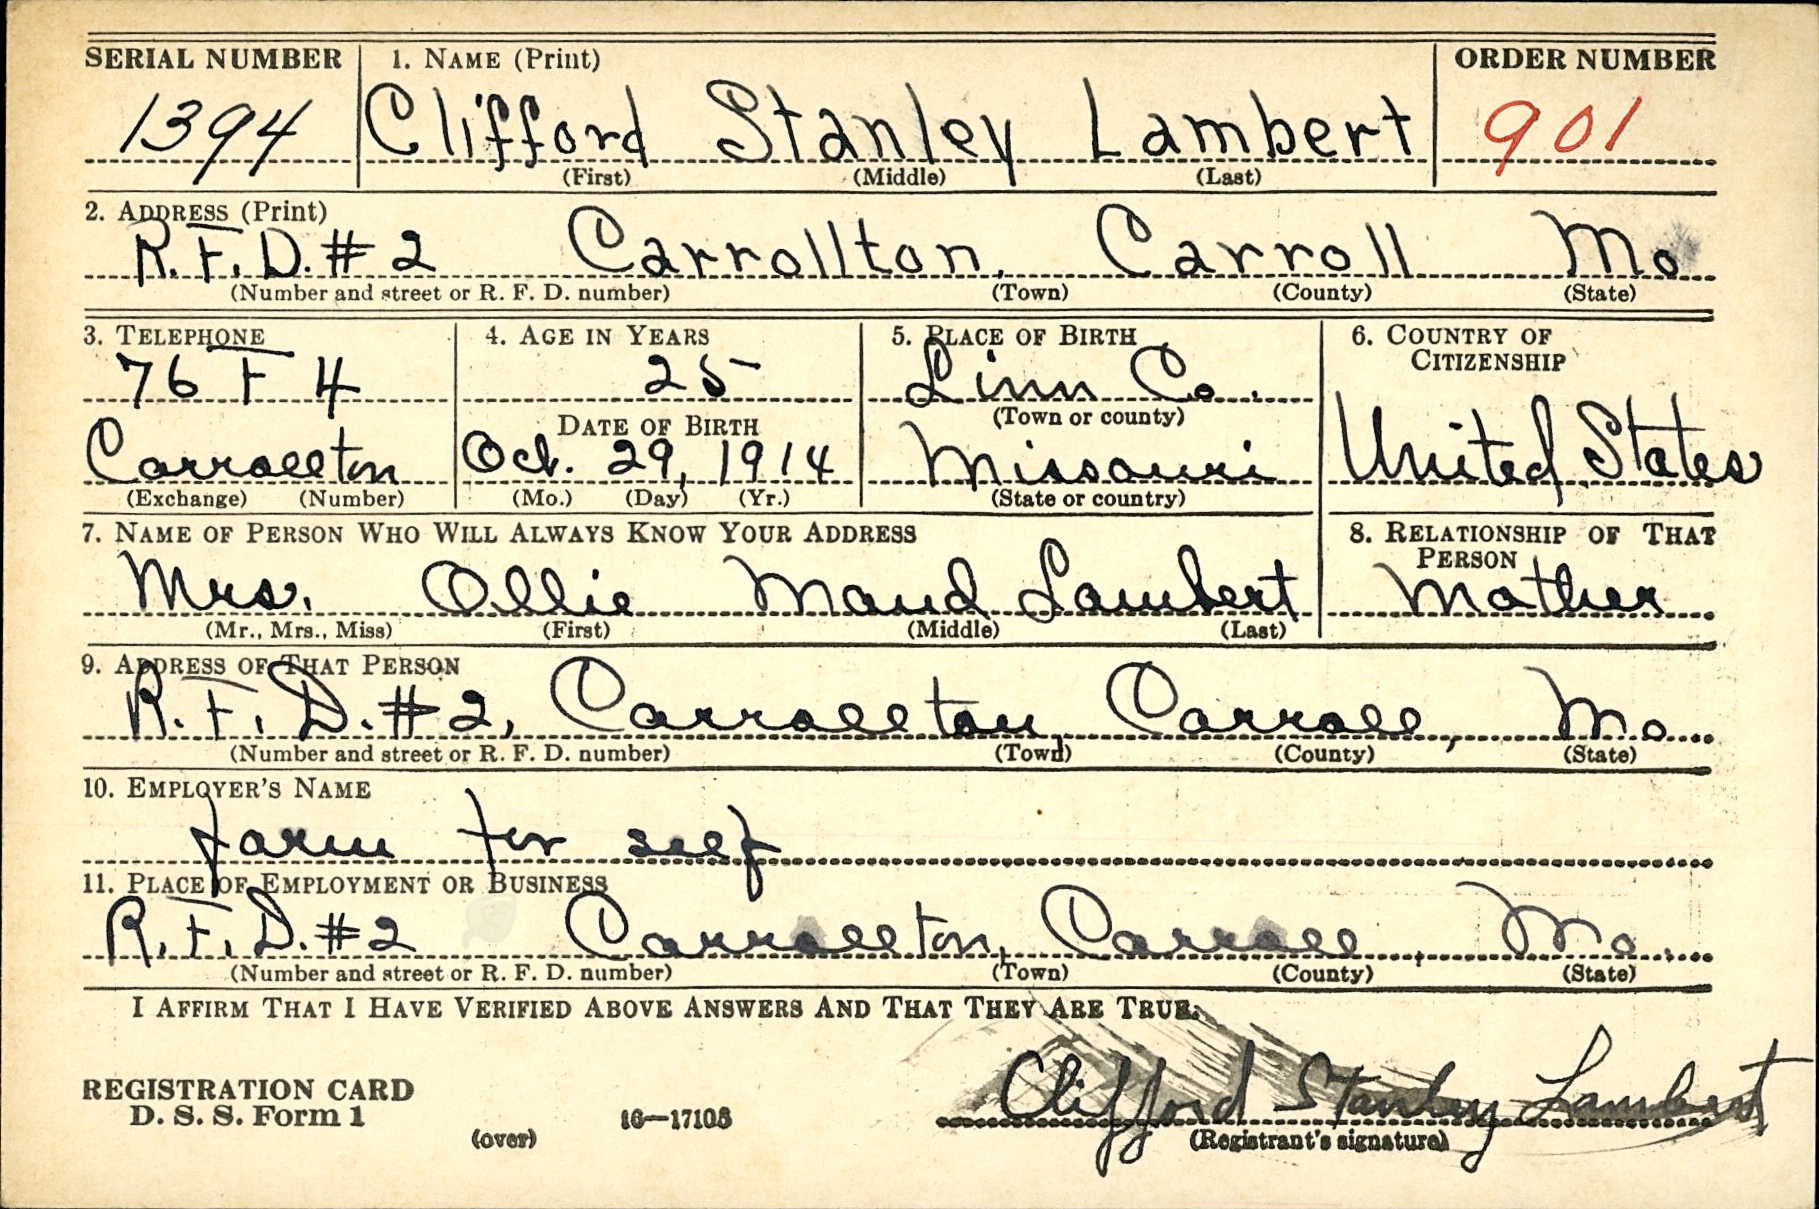 SERIAL NUMBER 1. NAME (Print) ORDER NUMBER
1394 Clifford Stanley Lambert 901
(First) (Middle) (Last)
2. ADDRESS (Print)
R.F.D.#2 Carrollton, Carroll Mo
(Number and street or R. F. D. number) (Town) (County) (State)
3. TELEPHONE 4. AGE IN YEARS 5. PLACE OF BIRTH 6. COUNTRY OF
CITIZENSHIP
76 F 4 25 Linn Co.
DATE OF BIRTH (Town or county)
Carrollton Oct. 29, 1914 Missouri United States
(Exchange) (Number) (Mo.) (Day) (Yr.) (State or country)
7. NAME OF PERSON WHO WILL ALWAYS KNOW YOUR ADDRESS 8. RELATIONSHIP OF THAT
PERSON
Mrs. Ollie Maud Lambert Mother
(Mr., Mrs., Miss) (First) (Middle) (Last)
9. ADDRESS OF THAT PERSON
R.F.D.#2, Carrollton, Carroll, Mo.
(Number and street or R. F. D. number) (Town) (County) (State)
10. EMPLOYER'S NAME
farm for self
11. PLACE OF EMPLOYMENT OR BUSINESS
R.F.D.#2 Carrollton, Carroll, Mo.
(Number and street or R. F. D. number) (Town) (County) (State)
I AFFIRM THAT I HAVE VERIFIED ABOVE ANSWERS AND THAT THEY ARE TRUE.
Clifford Stanley Lambert
REGISTRATION CARD
D. S. S. Form 1 16—17105
(over) (Registrant's signature)